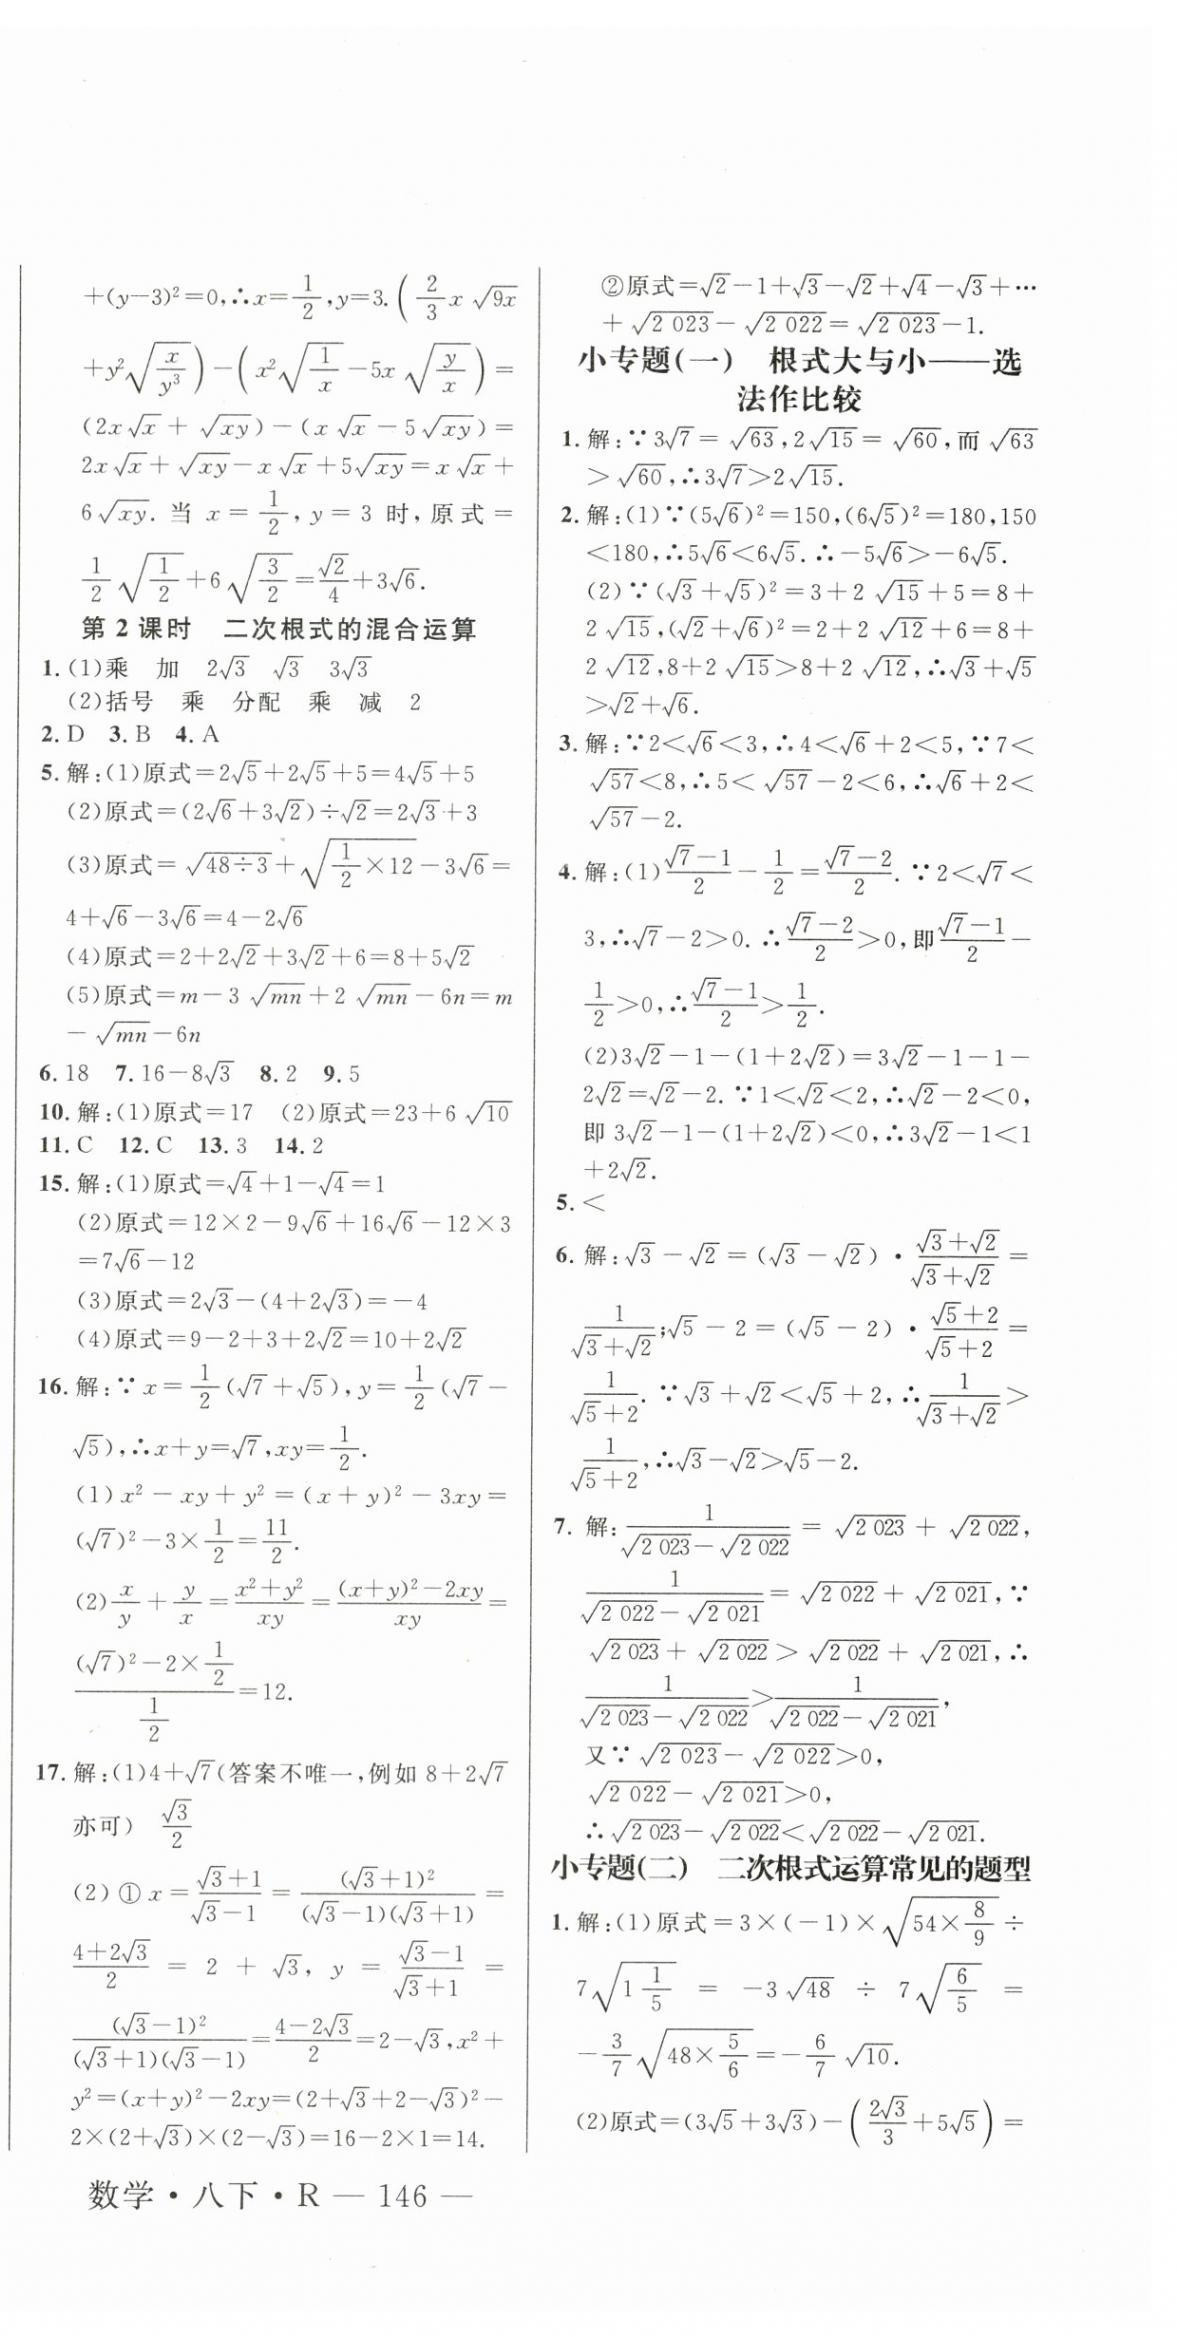 +(y-3)²=0,∴x=1/2,y=3.(2/3 x√(9x)
+y²√(x/y³))-(x²√(1/x)-5x√(y/x))=
(2x√x+√(xy))-(x√x-5√(xy))=
2x√x+√(xy)-x√x+5√(xy)=x√x+
6√(xy).当 x=1/2,y=3 时,原式=
1/2√(1/2)+6√(3/2)=√2/4+3√6.
第2课时 二次根式的混合运算
1.(1)乘 加 2√3 √3 3√3
(2)括号 乘 分配 乘 减 2
2.D 3.B 4.A
5.解:(1)原式=2√5+2√5+5=4√5+5
(2)原式=(2√6+3√2)÷√2=2√3+3
(3)原式=√(48÷3)+√(1/2×12)-3√6=
4+√6-3√6=4-2√6
(4)原式=2+2√2+3√2+6=8+5√2
(5)原式=m-3√(mn)+2√(mn)-6n=m
-√(mn)-6n
6.18 7.16-8√3 8.2 9.5
10.解:(1)原式=17 (2)原式=23+6√10
11.C 12.C 13.3 14.2
15.解:(1)原式=√4+1-√4=1
(2)原式=12×2-9√6+16√6-12×3
=7√6-12
(3)原式=2√3-(4+2√3)=-4
(4)原式=9-2+3+2√2=10+2√2
16.解:∵x=1/2(√7+√5),y=1/2(√7-
√5),∴x+y=√7,xy=1/2.
(1)x²-xy+y²=(x+y)²-3xy=
(√7)²-3×1/2=11/2.
(2)x/y+y/x=(x²+y²)/(xy)=((x+y)²-2xy)/(xy)=
((√7)²-2×1/2)/(1/2)=12.
17.解:(1)4+√7(答案不唯一,例如 8+2√7
亦可) √3/2
(2)①x=(√3+1)/(√3-1)=(√3+1)²/((√3-1)(√3+1))=
(4+2√3)/2=2+√3,y=(√3-1)/(√3+1)=
(√3-1)²/((√3+1)(√3-1))=(4-2√3)/2=2-√3,x²+
y²=(x+y)²-2xy=(2+√3+2-√3)²-
2×(2+√3)×(2-√3)=16-2×1=14.
数学·八下·R — 146 —
②原式=√2-1+√3-√2+√4-√3+⋯
+√2 023-√2 022=√2 023-1.
小专题(一) 根式大与小——选
法作比较
1.解:∵3√7=√63,2√15=√60,而√63
>√60,∴3√7>2√15.
2.解:(1)∵(5√6)²=150,(6√5)²=180,150
<180,∴5√6<6√5.∴-5√6>-6√5.
(2)∵(√3+√5)²=3+2√15+5=8+
2√15,(√2+√6)²=2+2√12+6=8+
2√12,8+2√15>8+2√12,∴√3+√5
>√2+√6.
3.解:∵2<√6<3,∴4<√6+2<5,∵7<
√57<8,∴5<√57-2<6,∴√6+2<
√57-2.
4.解:(1)(√7-1)/2-1/2=(√7-2)/2.∵2<√7<
3,∴√7-2>0.∴(√7-2)/2>0,即(√7-1)/2-
1/2>0,∴(√7-1)/2>1/2.
(2)3√2-1-(1+2√2)=3√2-1-1-
2√2=√2-2.∵1<√2<2,∴√2-2<0,
即 3√2-1-(1+2√2)<0,∴3√2-1<1
+2√2.
5.<
6.解:√3-√2=(√3-√2)·(√3+√2)/(√3+√2)=
1/(√3+√2);√5-2=(√5-2)·(√5+2)/(√5+2)=
1/(√5+2).∵√3+√2<√5+2,∴1/(√3+√2)>
1/(√5+2),∴√3-√2>√5-2.
7.解:1/(√2 023-√2 022)=√2 023+√2 022,
1/(√2 022-√2 021)=√2 022+√2 021,∵
√2 023+√2 022>√2 022+√2 021,∴
1/(√2 023-√2 022)>1/(√2 022-√2 021),
又∵√2 023-√2 022>0,
√2 022-√2 021>0,
∴√2 023-√2 022<√2 022-√2 021.
小专题(二) 二次根式运算常见的题型
1.解:(1)原式=3×(-1)×√(54×8/9)÷
7√(1 1/5)=-3√48÷7√(6/5)=
-3/7√(48×5/6)=-6/7√10.
(2)原式=(3√5+3√3)-(2√3/3+5√5)=